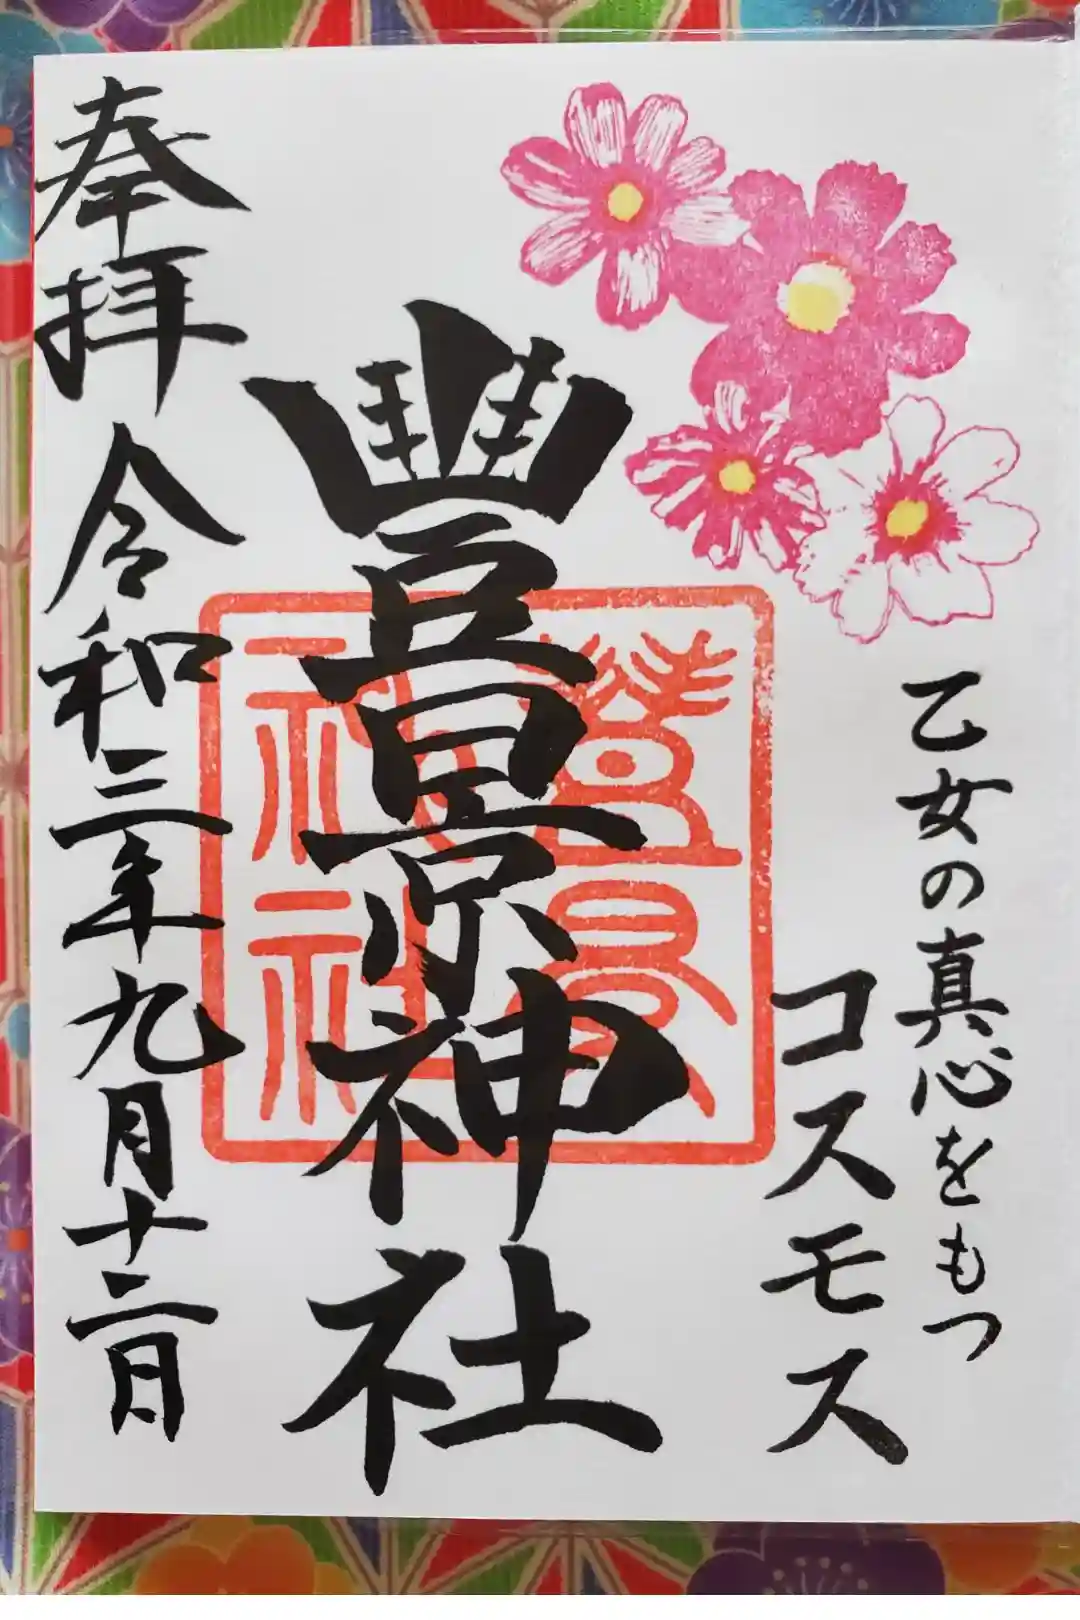 乙女の真心をもつ
コスモス
豐景神社
奉拝 令和三年九月十二日